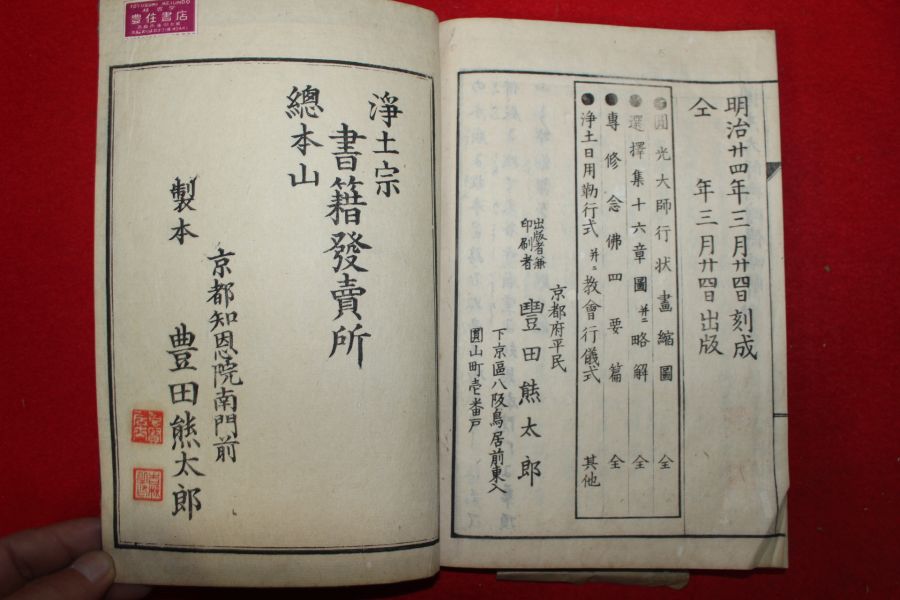 明治廿四年三月廿四日刻成
仝　年三月廿四日出版
●圓光大師行状畫縮圖　全
●選擇集十六章圖并ニ略解　全
●專修念佛四要篇　全
●淨土日用勤行式并ニ教會行儀式　其他
京都府平民
出版者兼
印刷者
豐田熊太郎
下京區八阪鳥居前東入
圓山町壱番戸
淨土宗
總本山
書籍發賣所
京都知恩院南門前
製本　豊田熊太郎
豊住書店